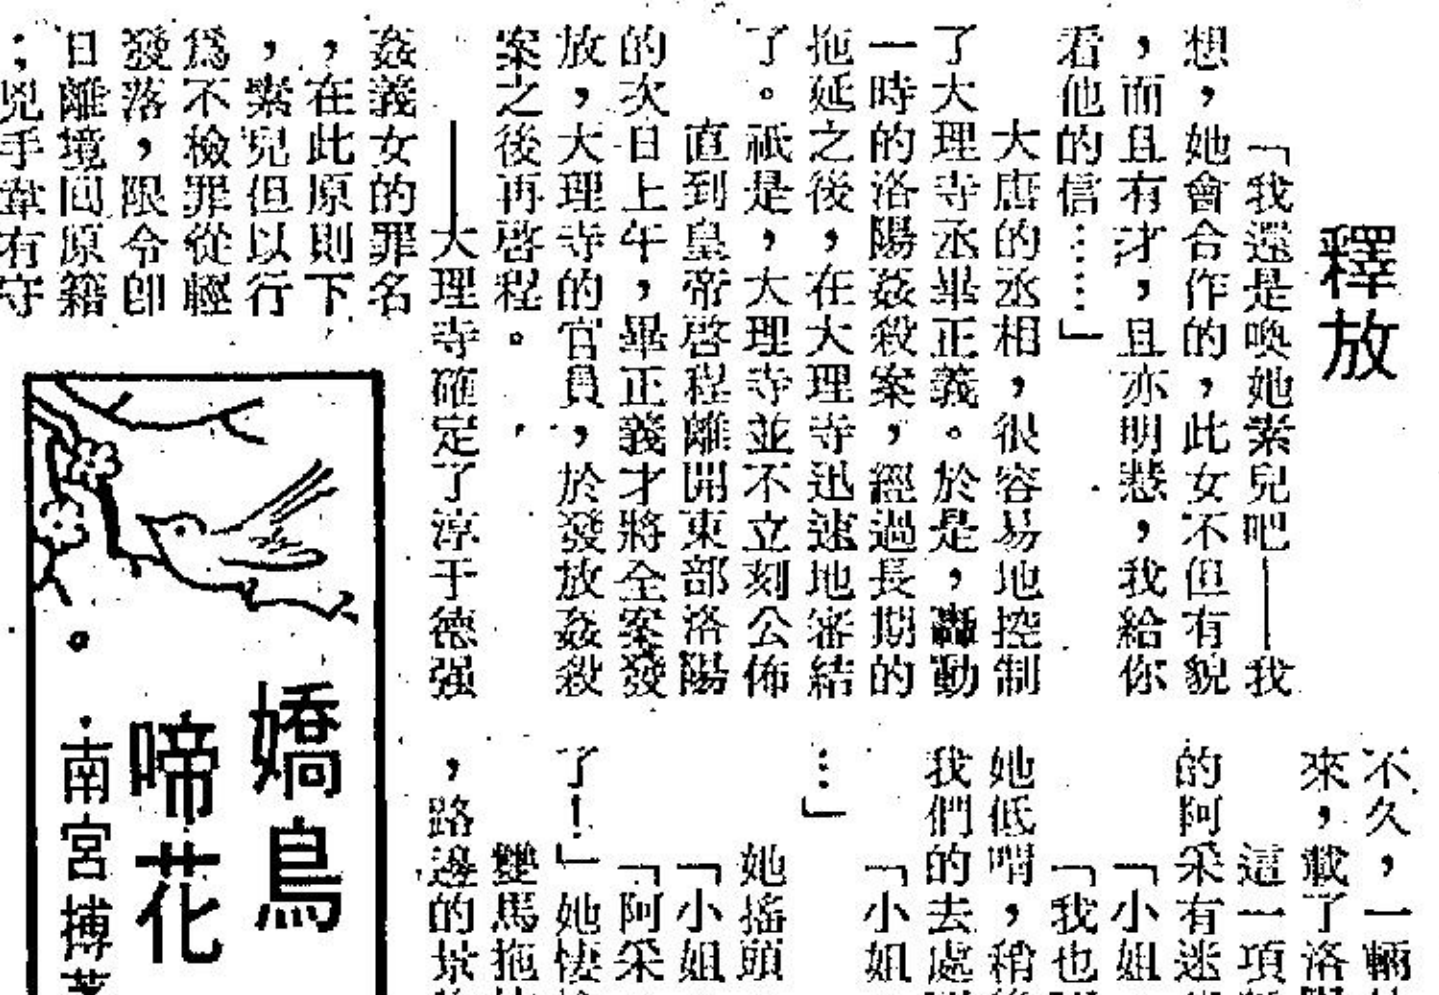 釋放
「我還是喚她素兒吧——我
想，她會合作的，此女不但有貌
，而且有才，且亦明慧，我給你
看他的信……」
大唐的丞相，很容易地控制
了大理寺丞畢正義。於是，轟動
一時的洛陽姦殺案，經過長期的
拖延之後，在大理寺迅速地審結
了。祇是，大理寺並不立刻公佈
直到皇帝啓程離開東部洛陽
的次日上午，畢正義才將全案發
放，大理寺的官員，於發放姦殺
案之後再啓程。
——大理寺確定了淳于德强
姦義女的罪名
，在此原則下
，素兒但以行
爲不檢罪從輕
發落，限令卽
日離境囘原籍
；兇手韋有守
不久，一輛
來，載了洛陽
這一項
的阿采有迷
「小姐
「我也
她低喟，稍後
我們的去處
「小姐
…」
她搖頭
「小姐
「阿采
了！」她悽
雙馬拖
，路邊的景
嬌鳥
啼花
。南宮搏著